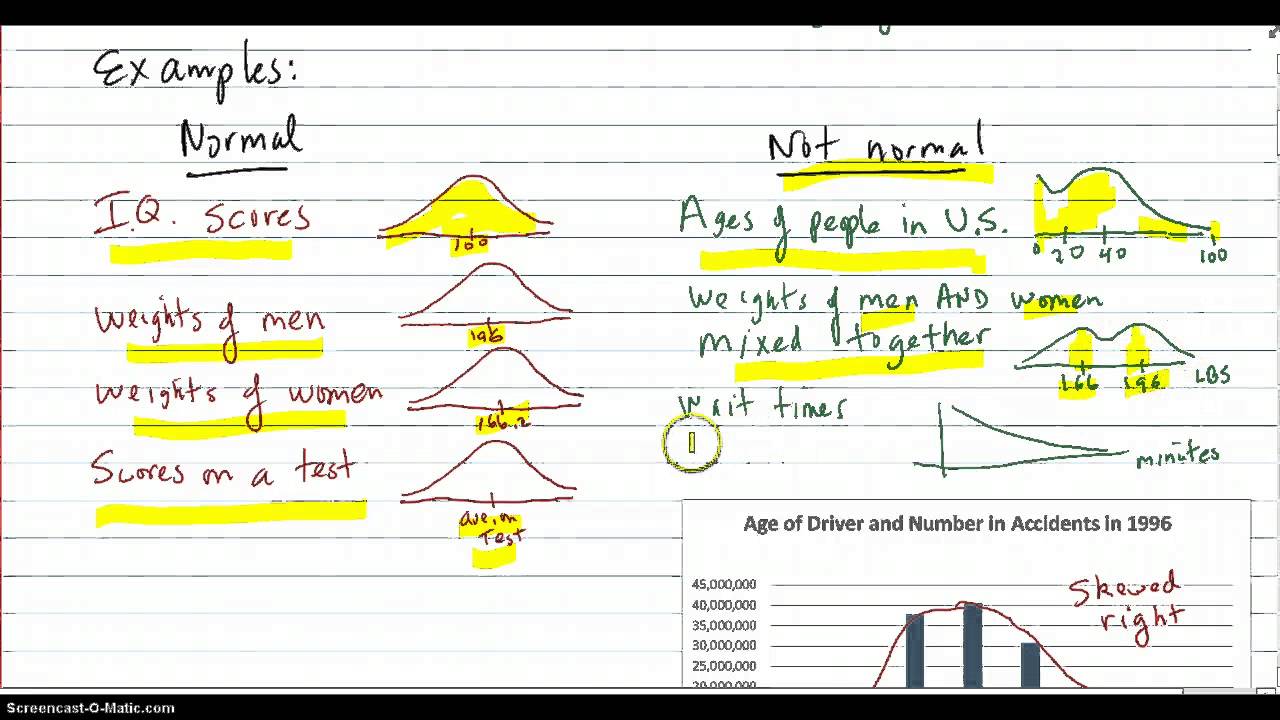 Examples:
Normal
I.Q. Scores
100
Weights of men
196
Weights of women
166.2
Scores on a test
ave. on
Test
Not normal
Ages of people in U.S.
0 20 40 100
Weights of men AND women
mixed together
166 196 LBS
Wait times
minutes
Age of Driver and Number in Accidents in 1996
45,000,000
40,000,000
35,000,000
30,000,000
25,000,000
20,000,000
Skewed
right
Screencast-O-Matic.com